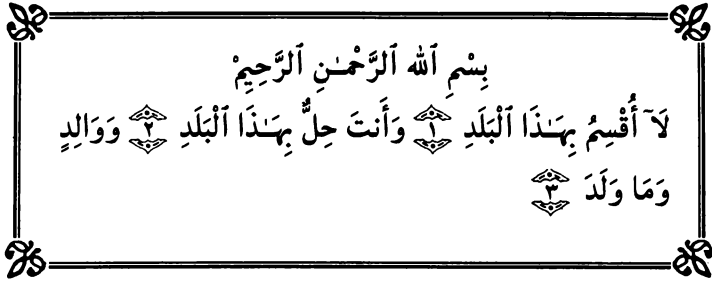 بِسْمِ ٱللَّهِ ٱلرَّحْمَـٰنِ ٱلرَّحِيمِْ
لَآ أُقْسِمُ بِهَـٰذَا ٱلْبَلَدِ ١ وَأَنتَ حِلٌّ بِهَـٰذَا ٱلْبَلَدِ ٢ وَوَالِدٍ
وَمَا وَلَدَ ٣